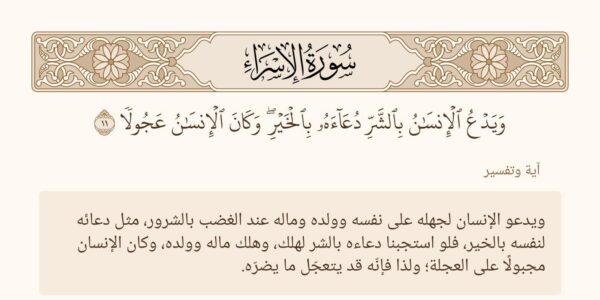 سُورَةُ الإِسْرَاءِ
وَيَدْعُ ٱلْإِنسَٰنُ بِٱلشَّرِّ دُعَآءَهُۥ بِٱلْخَيْرِۖ وَكَانَ ٱلْإِنسَٰنُ عَجُولًا ١١
آية وتفسير
ويدعو الإنسان لجهله على نفسه وولده وماله عند الغضب بالشرور، مثل دعائه
لنفسه بالخير، فلو استجبنا دعاءه بالشر لهلك، وهلك ماله وولده، وكان الإنسان
مجبولًا على العجلة؛ ولذا فإنّه قد يتعجّل ما يضرّه.